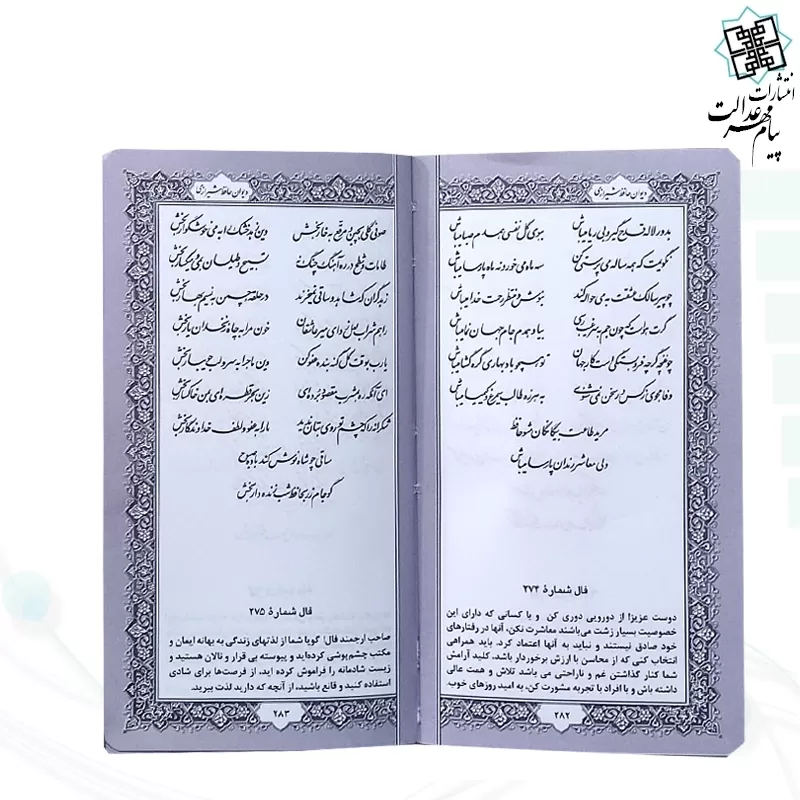 انتشارات
پیام مهر عدالت
دیوان حافظ شیرازی
بدور لاله قدح گیر و بی ریا میباش ببوی گل نفسی همدم صبا میباش
نگویمت که همه ساله می پرستی کن سه ماه می خور و نه ماه پارسا میباش
چو پیر سالک عشقت به می حواله کند بنوش و منتظر رحمت خدا میباش
گرت هواست که چون جم به سر غیب رسی بیا و همدم جام جهان نما میباش
چو غنچه گرچه فروبستگی است کار جهان تو همچو باد بهاری گره گشا میباش
وفا مجوی ز کس ور سخن نمی شنوی به هرزه طالب سیمرغ و کیمیا میباش
مرید طاعت بیگانگان مشو حافظ
ولی معاشر رندان پارسا میباش
فال شمارهٔ ۲۷۴
دوست عزیز! از دورویی دوری کن و با کسانی که دارای این
خصوصیت بسیار زشت می‌باشند معاشرت نکن، آنها در رفتارهای
خود صادق نیستند و نباید به آنها اعتماد کرد. باید همراهی
انتخاب کنی که از محاسن با ارزش برخوردار باشد. کلید آرامش
شما کنار گذاشتن غم و ناراحتی می باشد تلاش و همت عالی
داشته باش و با افراد با تجربه مشورت کن، به امید روزهای خوب.
۲۸۲
دیوان حافظ شیرازی
صوفی گلی بچین و مرقع به خار بخش وین زهد خشک را به می خوشگوار بخش
طامات و شطح در ره آهنگ چنگ نه تسبیح و طیلسان به می و میگسار بخش
زهد گران که شاهد و ساقی نمیخرند در حلقه چمن به نسیم بهار بخش
راهم شراب لعل زد ای میر عاشقان خون مرا به چاه زنخدان یار بخش
یارب بوقت گل گنه بنده عفو کن وین ماجرا به سرو لب جویبار بخش
ای آنکه ره به مشرب مقصود برده‌ای زین بحر قطره‌ای بمن خاکسار بخش
شکرانه را که چشم تو روی بتان ندید ما را به عفو و لطف خداوندگار بخش
ساقی چو شاه نوش کند باده صبوح
گو جام زر به حافظ شب زنده دار بخش
فال شمارهٔ ۲۷۵
صاحب ارجمند فال! گویا شما از لذتهای زندگی به بهانه ایمان و
مکتب چشم‌پوشی کرده‌اید و پیوسته بی قرار و نالان هستید و
زیست شادمانه را فراموش کرده اید، از فرصت‌ها برای شادی
استفاده کنید و قانع باشید، از آنچه که دارید لذت ببرید.
۲۸۳